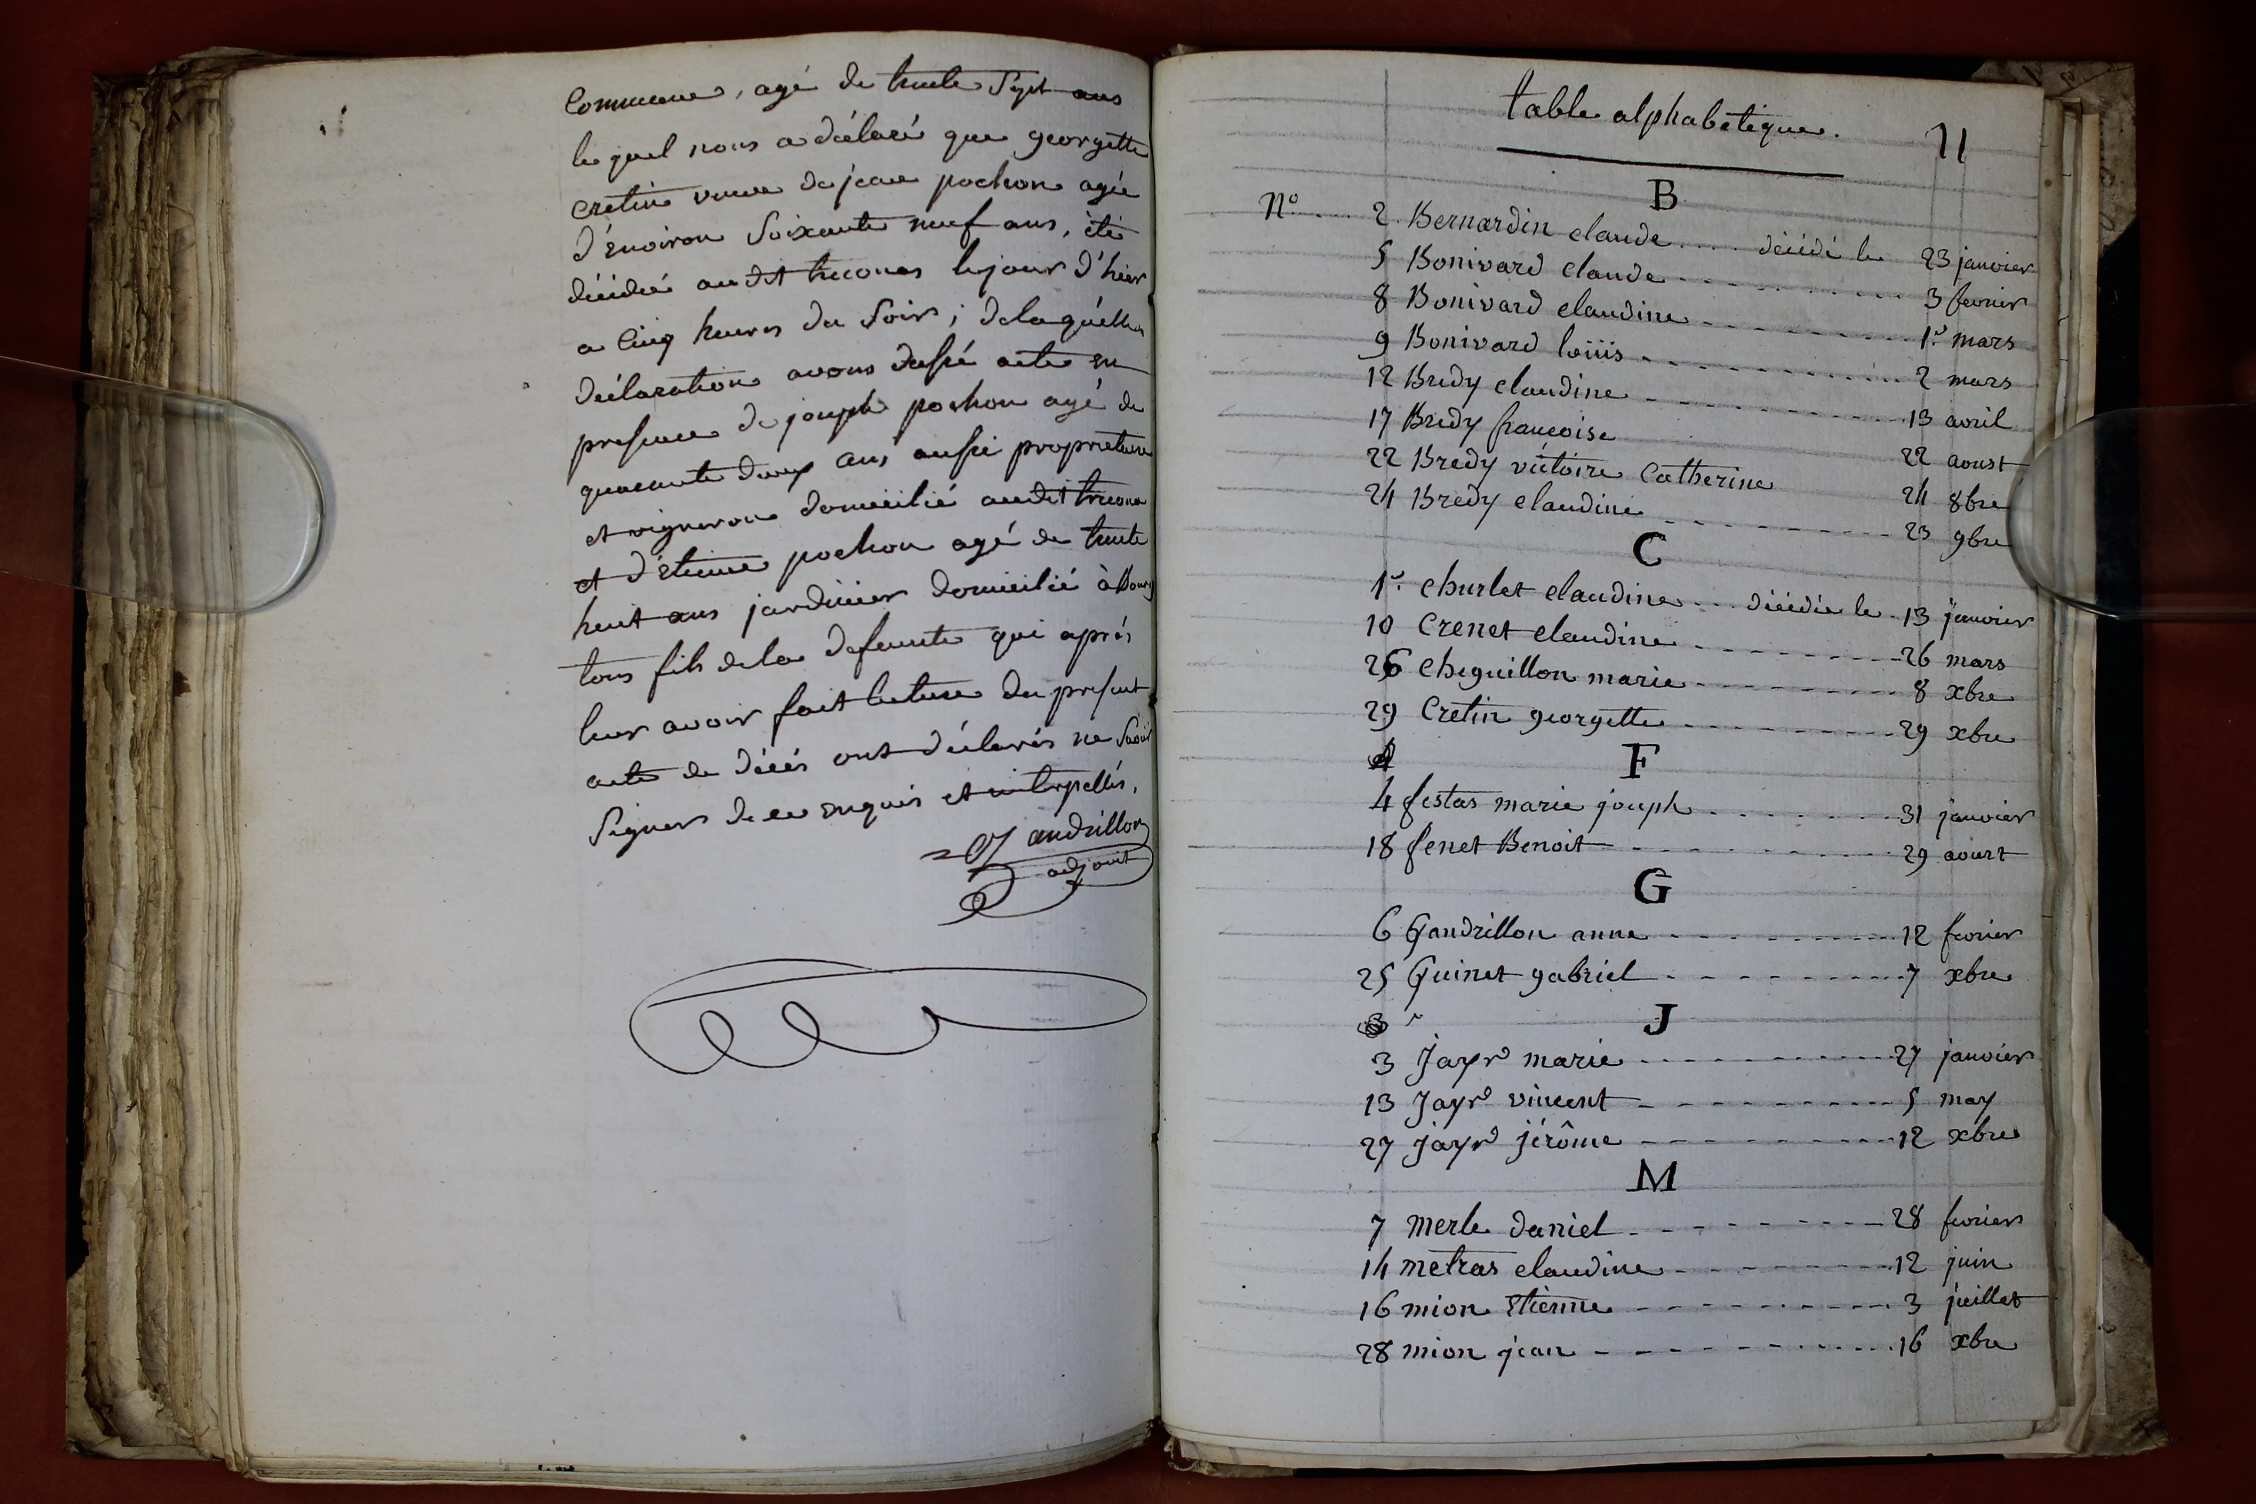 commune, agé de trente sept ans
le quel nous a déclaré que georgette
cretin veuve de jean pochon agée
d'environ soixante neuf ans, été
décidée audit treconas le jour d'hier
a cinq heures du soir; de laquélle
déclaration avons dressé acte en
presence de joseph pochon agé de
quarante deux ans aussi propriétaire
et vigneron domicilié audit treconas
et d'étienne pochon agé de trente
huit ans jardinier domicilié à Bourg
tous fils de la defunte qui aprés
leur avoir fait lecture du present
acte de décés ont déclarés ne savoir
signer de ce enquis et interpellés.
gandrillon
adjoint
table alphabétique.
11
B
N° 2 Bernardin claude décédé le 23 janvier
5 Bonivard claude 3 fevrier
8 Bonivard claudine 1r mars
9 Bonivard loüis 2 mars
12 Bredy claudine 13 avril
17 Bredy francoise 22 aoust
22 Bredy victoire catherine 24 8bre
24 Bredy claudine 23 9bre
C
1r churlet claudine décédée le 13 janvier
10 Crenet claudine 26 mars
26 cheguillon marie 8 xbre
29 Cretin georgette 29 xbre
F
4 festas marie joseph 31 janvier
18 fenet Benoit 29 aoust
G
6 Gandrillon anne 12 fevrier
25 Guinet gabriel 7 xbre
J
3 Jayr marie 27 janvier
13 Jayr vincent 5 may
27 jayr jérôme 12 xbre
M
7 merle daniel 28 fevrier
14 metras claudine 12 juin
16 mion etienne 3 juillet
28 mion jean 16 xbre